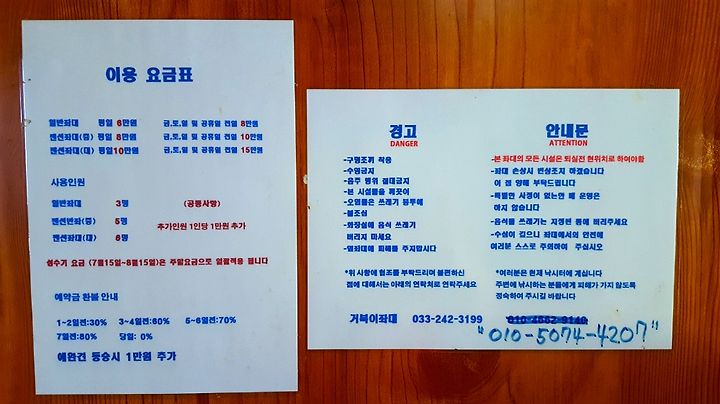 이용 요금표
일반좌대 평일 6만원 금,토,일 및 공휴일 전일 8만원
펜션좌대(중) 평일 8만원 금,토,일 및 공휴일 전일 10만원
펜션좌대(대) 평일10만원 금,토,일 및 공휴일 전일 15만원
사용인원
일반좌대 3명 (공통사항)
펜션반좌(중) 5명 추가인원 1인당 1만원 추가
펜션좌대(대) 6명
성수기 요금 (7월15일~8월15일)은 주말요금으로 일괄적용 됩니다
예약금 환불 안내
1~2일전:30% 3~4일전:60% 5~6일전:70%
7일전:80% 당일: 0%
애완견 동승시 1만원 추가
경고
DANGER
-구명조끼 착용
-수영금지
-음주 행위 절대금지
-본 시설물을 깨끗이
-오염물은 쓰레기 봉투에
-불조심
-화장실에 음식 쓰레기
버리지 마세요
-옆좌대에 피해를 주지맙시다
*위 사항에 협조를 부탁드리며 불편하신
점에 대해서는 아래의 연락처로 연락주세요
안내문
ATTENTION
-본 좌대의 모든 시설은 퇴실전 현위치로 하여야함
-좌대 손상시 변상조치 하겠습니다
이 점 양해 부탁드립니다
-특별한 사정이 없는한 배 운영은
하지 않습니다
-음식물 쓰레기는 지정된 통에 버리주세요
-수심이 깊으니 좌대에서의 안전에
여러분 스스로 주의하여 주십시오
*여러분은 현재 낚시터에 계십니다
주변에 낚시하는 분들에게 피해가 가지 않도록
정숙하여 주시길 바랍니다
거북이좌대 033-242-3199
"010-5074-4207"